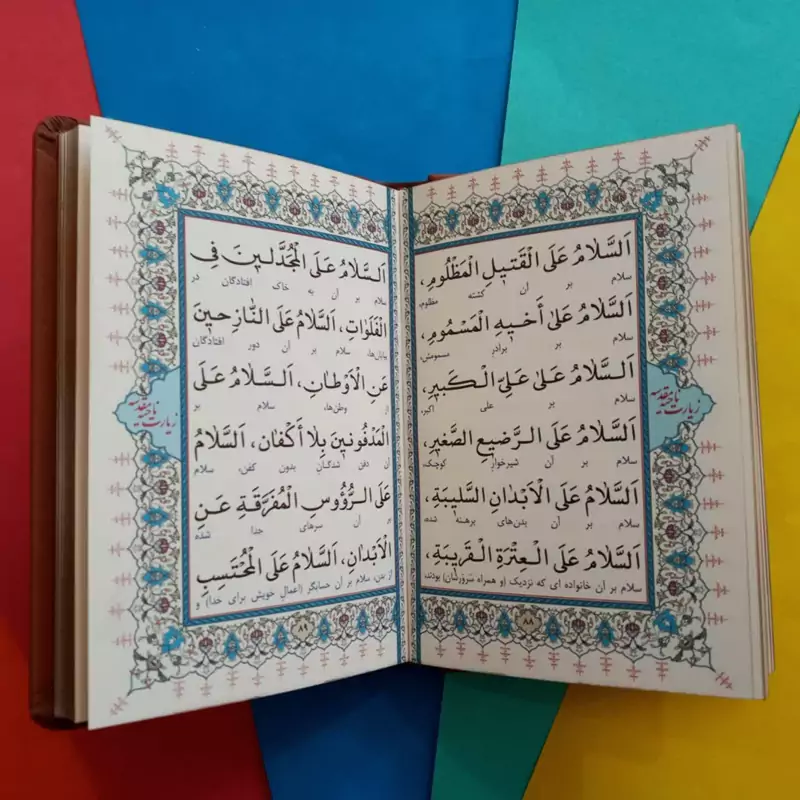 اَلسَّلامُ عَلَى الْقَتيلِ الْمَظْلُومِ،
سلام بر آن کشته مظلوم،
اَلسَّلامُ عَلىٰ أَخيهِ الْمَسْمُومِ،
سلام بر برادر مسمومش،
اَلسَّلامُ عَلىٰ عَلِىٍّ الْكَبيرِ،
سلام بر علی اکبر،
اَلسَّلامُ عَلَى الرَّضيعِ الصَّغيرِ،
سلام بر آن شیرخوار کوچک،
اَلسَّلامُ عَلَى الْأَبْدانِ السَّليبَةِ،
سلام بر آن بدن‌های برهنه شده،
اَلسَّلامُ عَلَى الْعِتْرَةِ الْقَريبَةِ،
سلام بر آن خانواده ای که نزدیک (و همراه سرورشان) بودند،
زیارت ناحیه مقدسه
۸۸
اَلسَّلامُ عَلَى الْمُجَدَّلينَ فِى
سلام بر آن به خاک افتادگان در
الْفَلَواتِ، اَلسَّلامُ عَلَى النّازِحينَ
بیابان‌ها، سلام بر آن دور افتادگان
عَنِ الْأَوْطانِ، اَلسَّلامُ عَلَى
از وطن‌ها، سلام بر
الْمَدْفُونينَ بِلا أَكْفانٍ، اَلسَّلامُ
آن دفن شدگان بدون کفن، سلام
عَلَى الرُّؤُوسِ الْمُفَرَّقَةِ عَنِ
بر آن سرهای جدا شده
الْأَبْدانِ، اَلسَّلامُ عَلَى الْمُحْتَسِبِ
از بدن، سلام بر آن حسابگر (اعمال خویش برای خدا) و
زیارت ناحیه مقدسه
۸۹